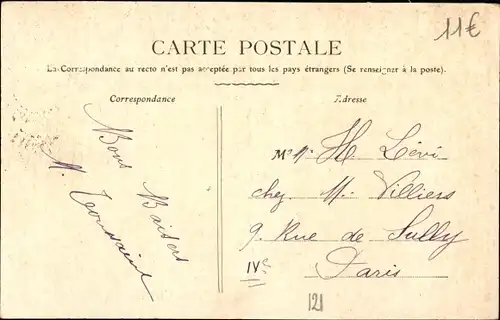 11€
CARTE POSTALE
La Correspondance au recto n'est pas acceptée par tous les pays étrangers (Se renseigner à la poste).
Correspondance
Adresse
Bons Baisers
M. Toussaint
Mlle H. Lévi
chez M. Villiers
9. Rue de Sully
Paris
IVe
121